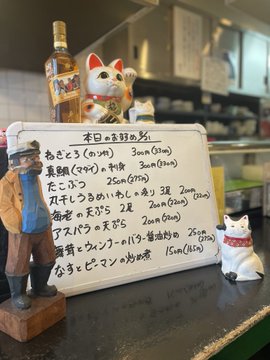 本日のおすすめ
ねぎとろ(のり付) 300円(330円)
真鯛(マダイ)の刺身 300円(330円)
たこぶつ 250円(275円)
丸干しうるめいわしの炙り 3尾 200円(220円)
海老の天ぷら 2尾 200円(220円)
アスパラの天ぷら 200円(220円)
舞茸とウィンナーのバター醤油炒め 250円(275円)
なすとピーマンの炒め煮 150円(165円)